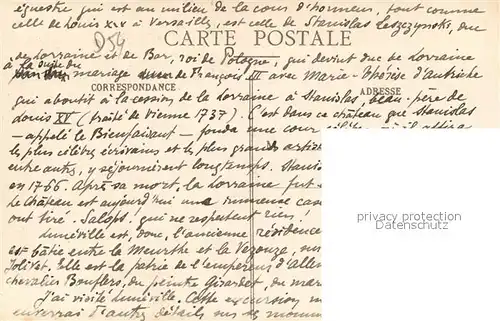 équestre qui est au milieu de la cour d'honneur, tout comme
celle de Louis XIV à Versailles, est celle de Stanislas Leszczynski, duc
D54
CARTE POSTALE
de Lorraine et de Bar, roi de Pologne, qui devint duc de Lorraine
à la suite du mariage de François III avec Marie-Thérèse d'Autriche
CORRESPONDANCE
ADRESSE
qui aboutit à la cession de la Lorraine à Stanislas, beau-père de
Louis XV (traité de Vienne 1737). C'est dans ce château que Stanislas
- appelé le Bienfaisant - fonda une cour célèbre, où il attira
les plus célèbres écrivains et les plus grands artis
entre autres, y séjournèrent longtemps. Stanis
en 1766. Après sa mort, la Lorraine fut
Le château est aujourd'hui une immense cas
ont tiré. Salops! qui ne respectent rien!
Lunéville est, donc, l'ancienne résidence
est bâtie entre la Meurthe et la Vezouze, su
Jolivet. Elle est la patrie de l'empereur d'Allem
chevalier Boufflers, du peintre Girardet, du mar
J'ai visité Lunéville. Cette excursion m
d'autres détails sur ce monum
privacy protection
my-medium.com